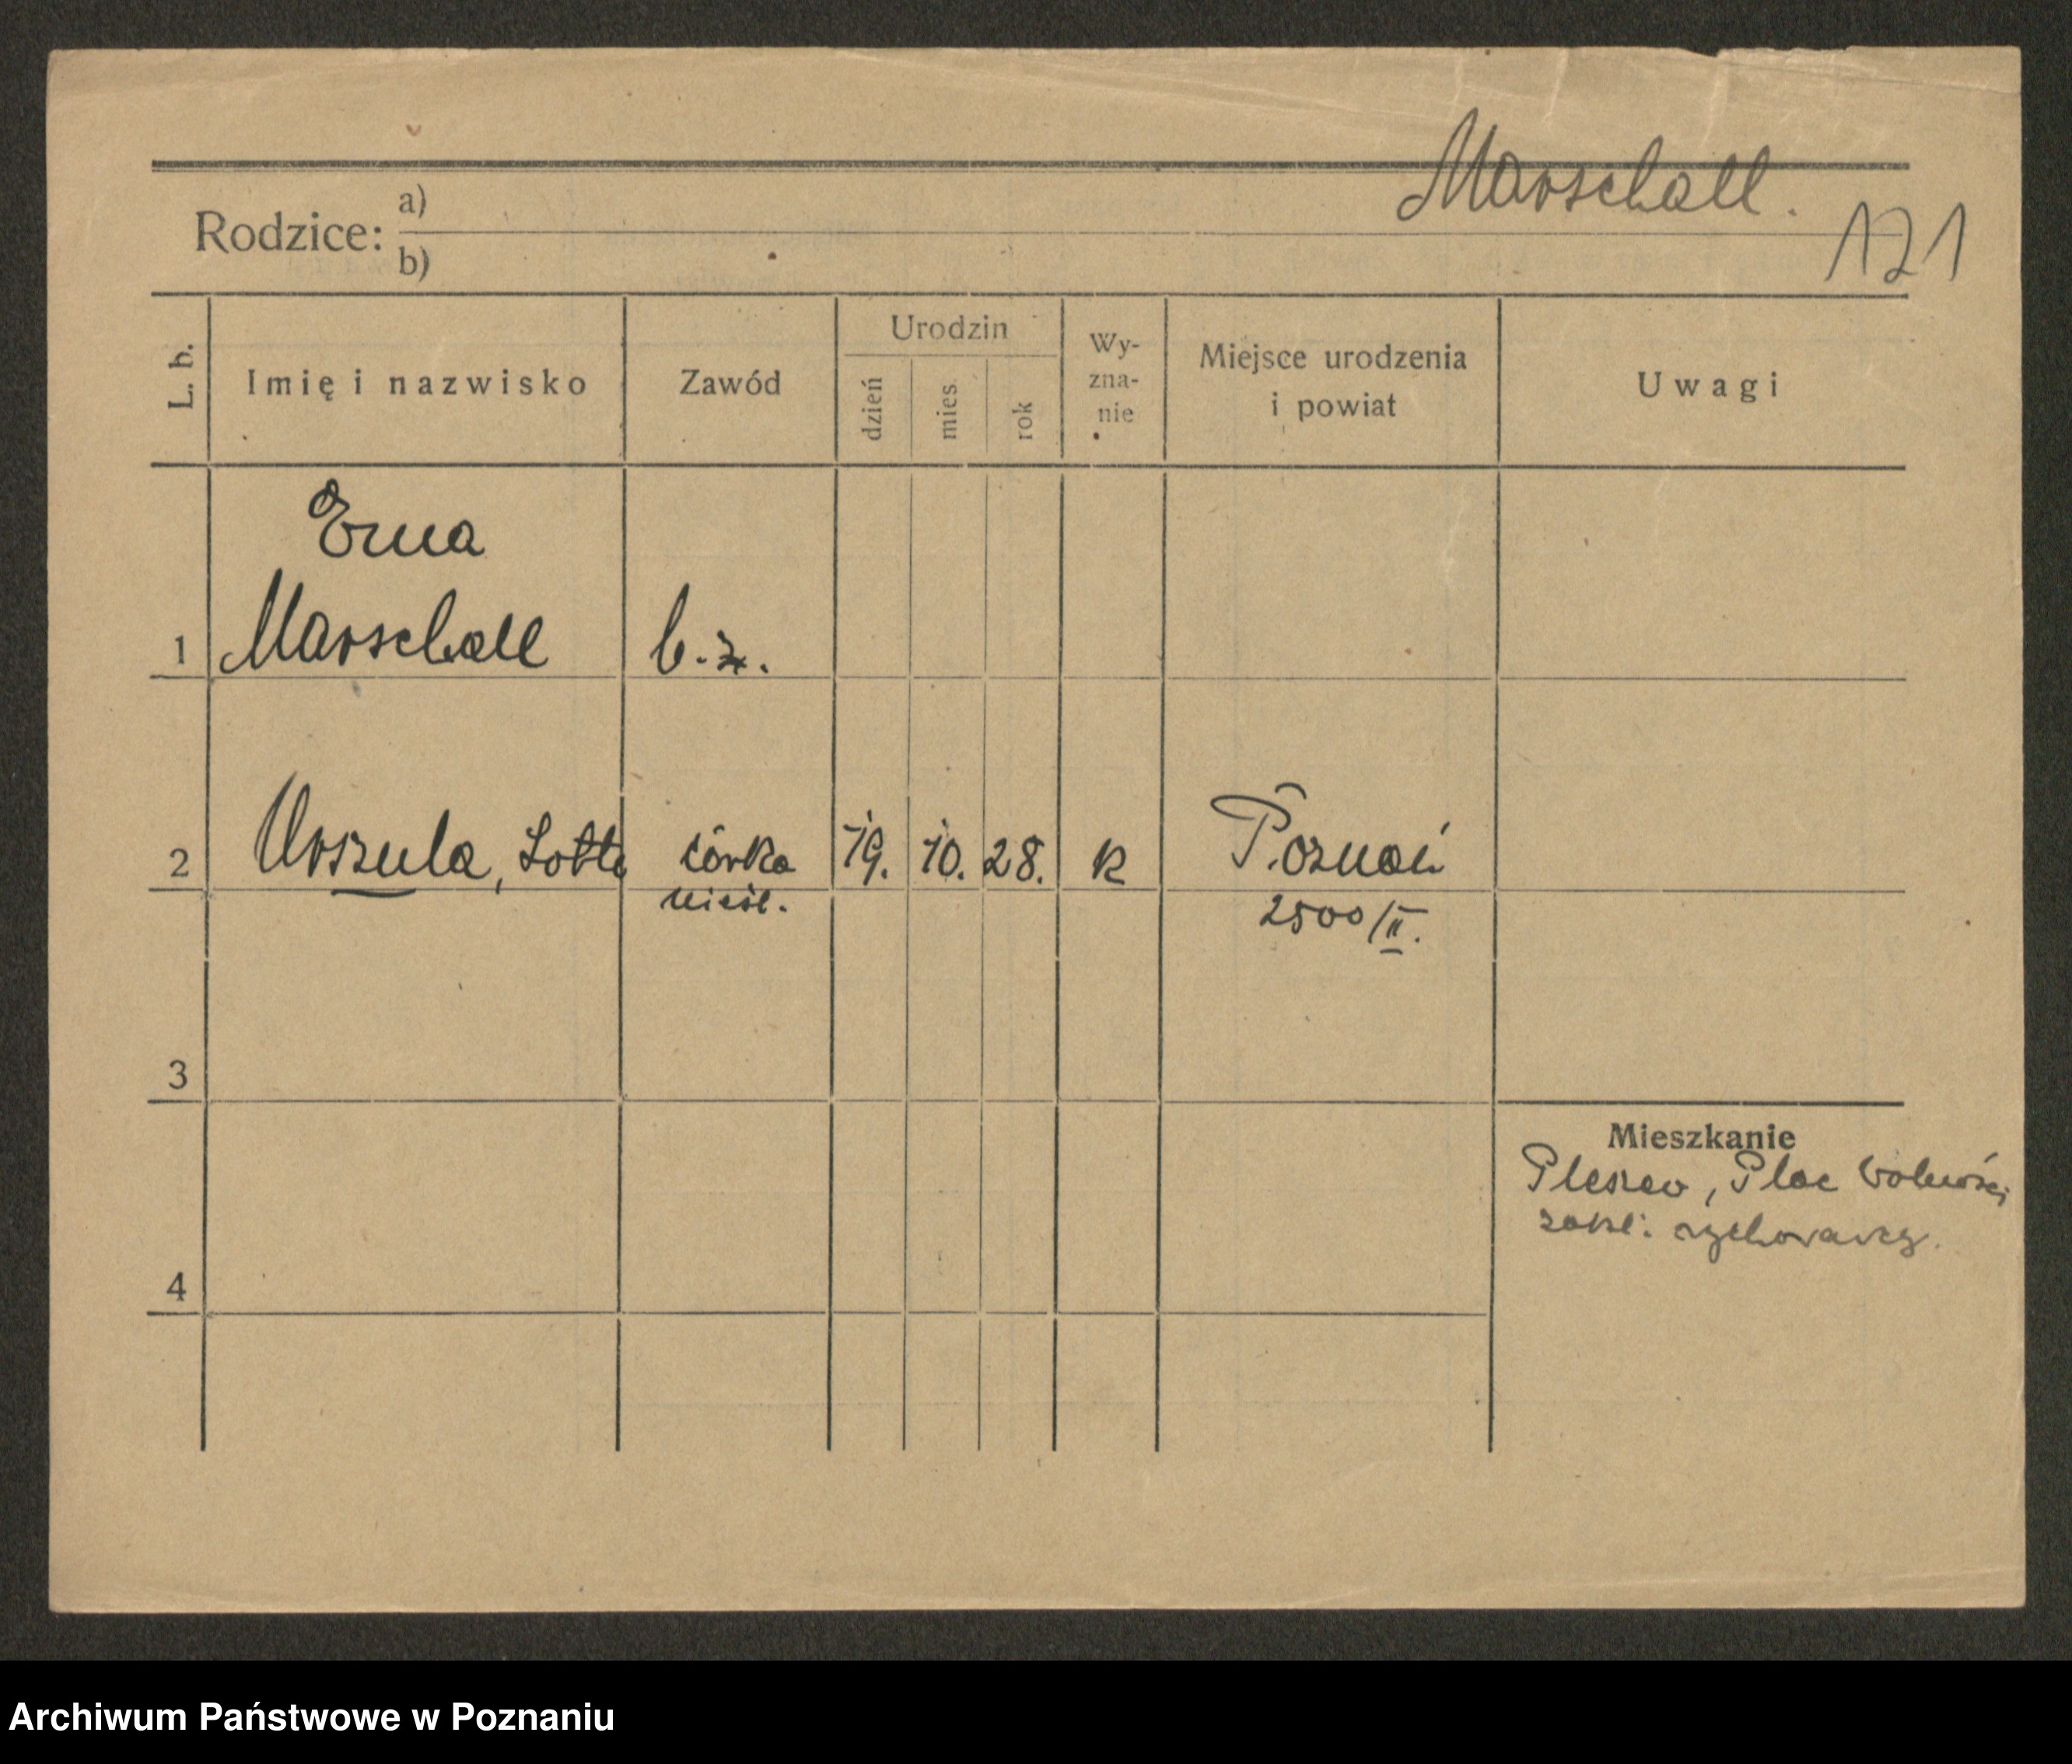 Marschall.
121
Rodzice: a)
b)
L. b.
Imię i nazwisko
Zawód
Urodzin
dzień
mies.
rok
Wy-
zna-
nie
Miejsce urodzenia
i powiat
Uwagi
Erna
1 Marschall b.z.
2 Urszula, Lotte córka 19. 10. 28. k Poznań
nieśl. 2500/II.
3
Mieszkanie
Pleszew, Plac Wolności
4
Archiwum Państwowe w Poznaniu